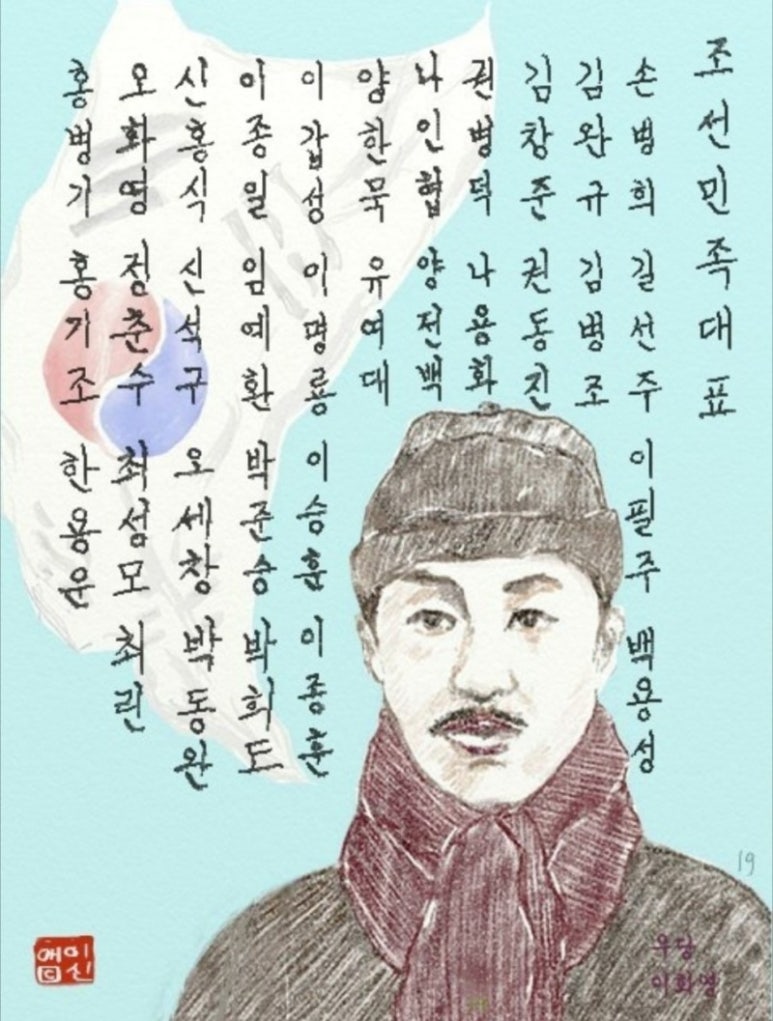 조선민족대표
손병희 길선주 이필주 백용성
김완규 김병조
김창준 권동진
권병덕 나용화
나인협 양전백
양한묵 유여대
이갑성 이명룡 이승훈 이종훈
이종일 임예환 박준승 박희도
신홍식 신석구 오세창 박동완
오화영 정춘수 최섬모 최린
홍병기 홍기조 한용운
19
우당
이회영